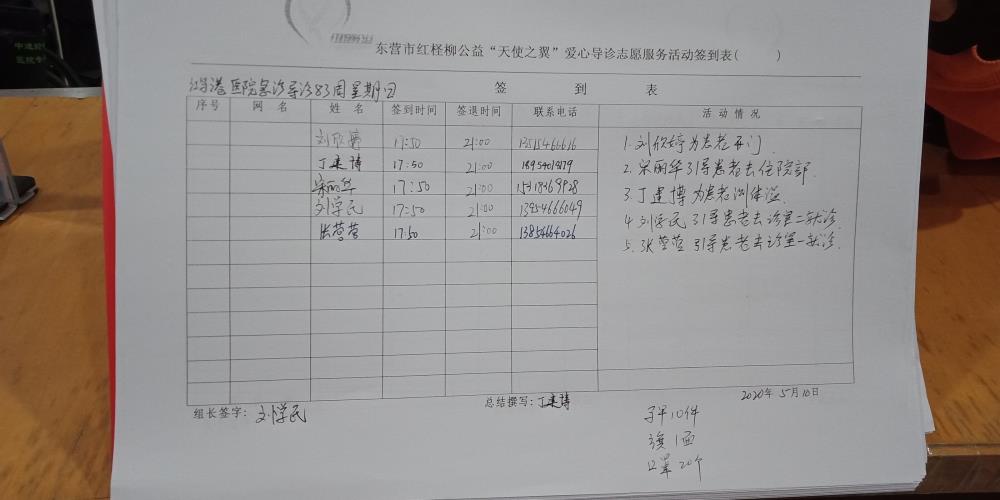 东营市红柽柳公益“天使之翼”爱心导诊志愿服务活动签到表( )
医院急诊导诊83周星期日
签 到 表
序号 网 名 姓 名 签到时间 签退时间 联系电话 活 动 情 况
刘欣婷 17:50 21:00 13515466616
丁建博 17:50 21:00
宋丽华 17:50 21:00
刘学民 17:50 21:00 13954666049
张萱萱 17:50 21:00 13854664026
1. 刘欣婷为患者开门.
2. 宋丽华引导患者去住院部.
3. 丁建博为患者测体温
4. 刘学民引导患者去诊室二就诊.
5. 张萱萱引导患者去诊室一就诊.
2020年5月10日
组长签字: 刘学民
总结撰写: 丁建博
马甲10件
旗1面
口罩20个